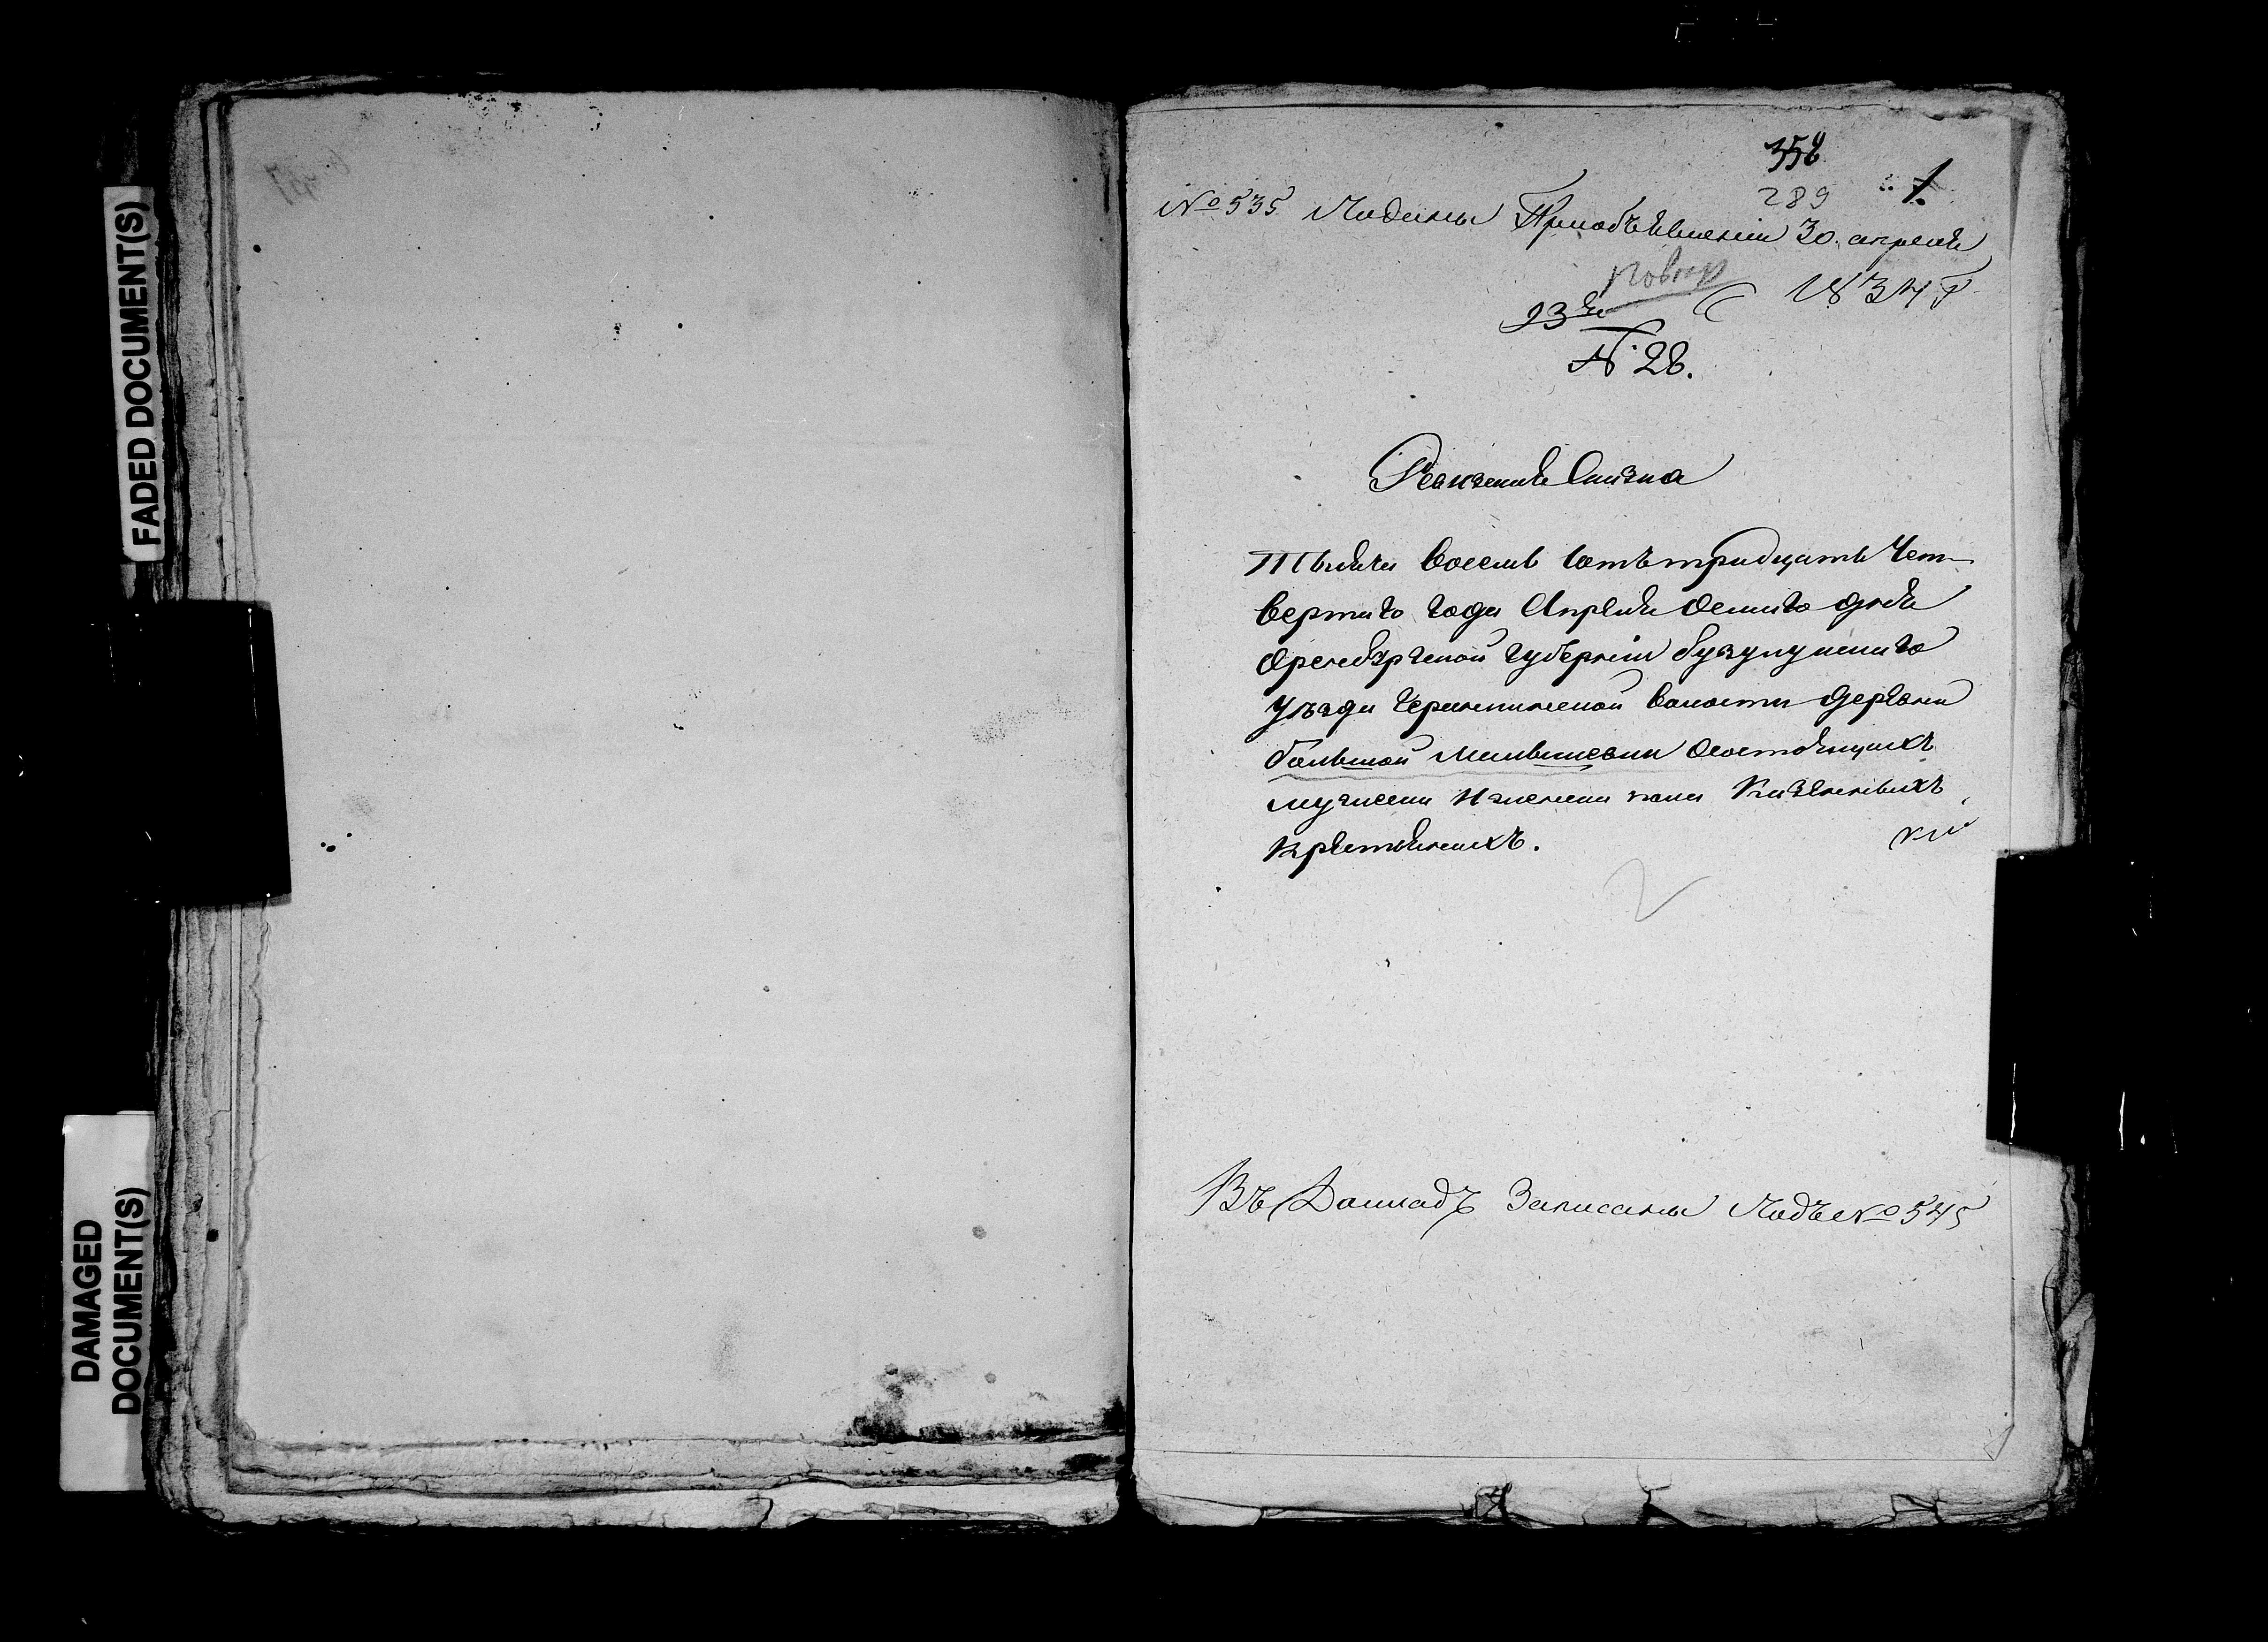 FADED DOCUMENT(S)
DAMAGED
DOCUMENT(S)
358
289 1.
№ 535 Поданы Приобъявлении 30. апреля
1834 г
93
№ 28.
Ревизская Сказка
Тысяча восемь сотъ тридцать Чет-
вертаго года Апреля дня
Оренбургской губернии бузулускаго
уѣзда волости деревни
большой Малышевки Состоящихъ
мужеска и женска пола Казенныхъ
Крестьянахъ.
Въ Докладъ Записаны Подъ № 545